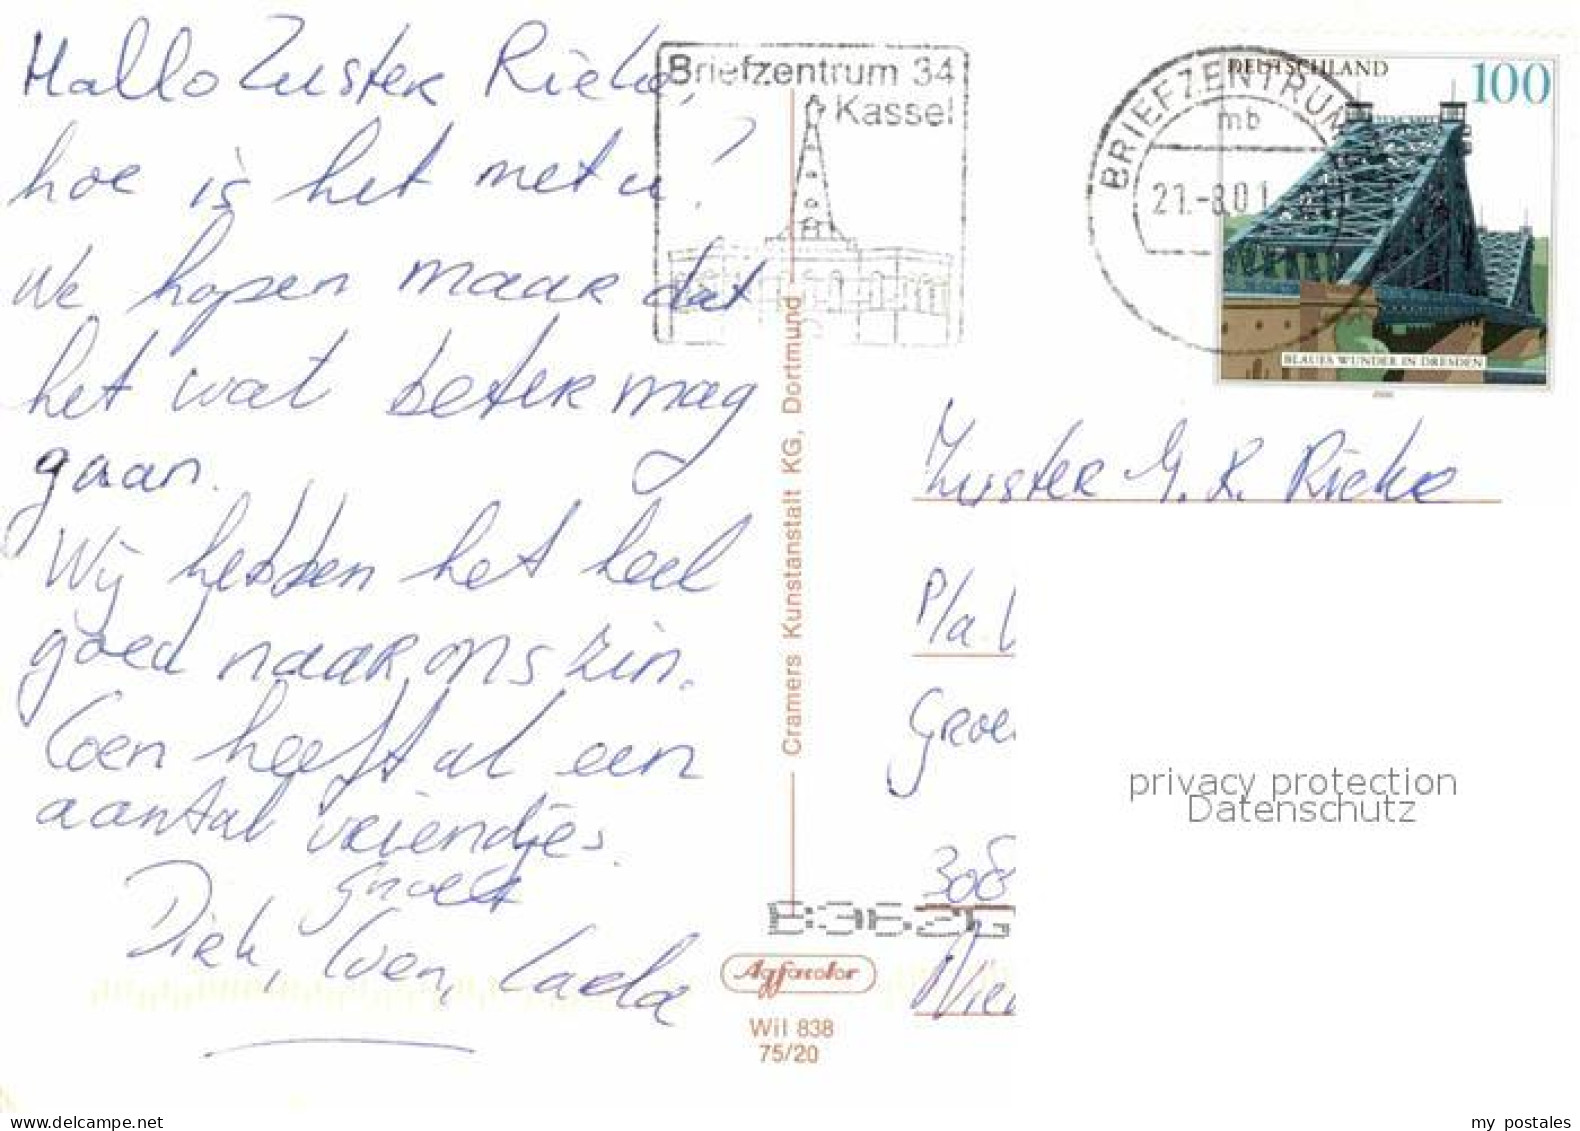 Hallo Zuster Rieke,
hoe is het met u?
We hopen maar dat
het wat beter mag
gaan.
Wij hebben het heel
goed naar ons zin.
Coen heeft al een
aantal vriendjes.
Groet
Dick, Coen, Carla
Briefzentrum 34
Kassel
BRIEFZENTRUM
mb
21.-8.01
DEUTSCHLAND
100
BLAUES WUNDER IN DRESDEN
2000
Cramers Kunstanstalt KG, Dortmund
Zuster G. R. Rieke
P/a.
308
privacy protection
Datenschutz
Agfacolor
Wil 838
75/20
www.delcampe.net
my_postales